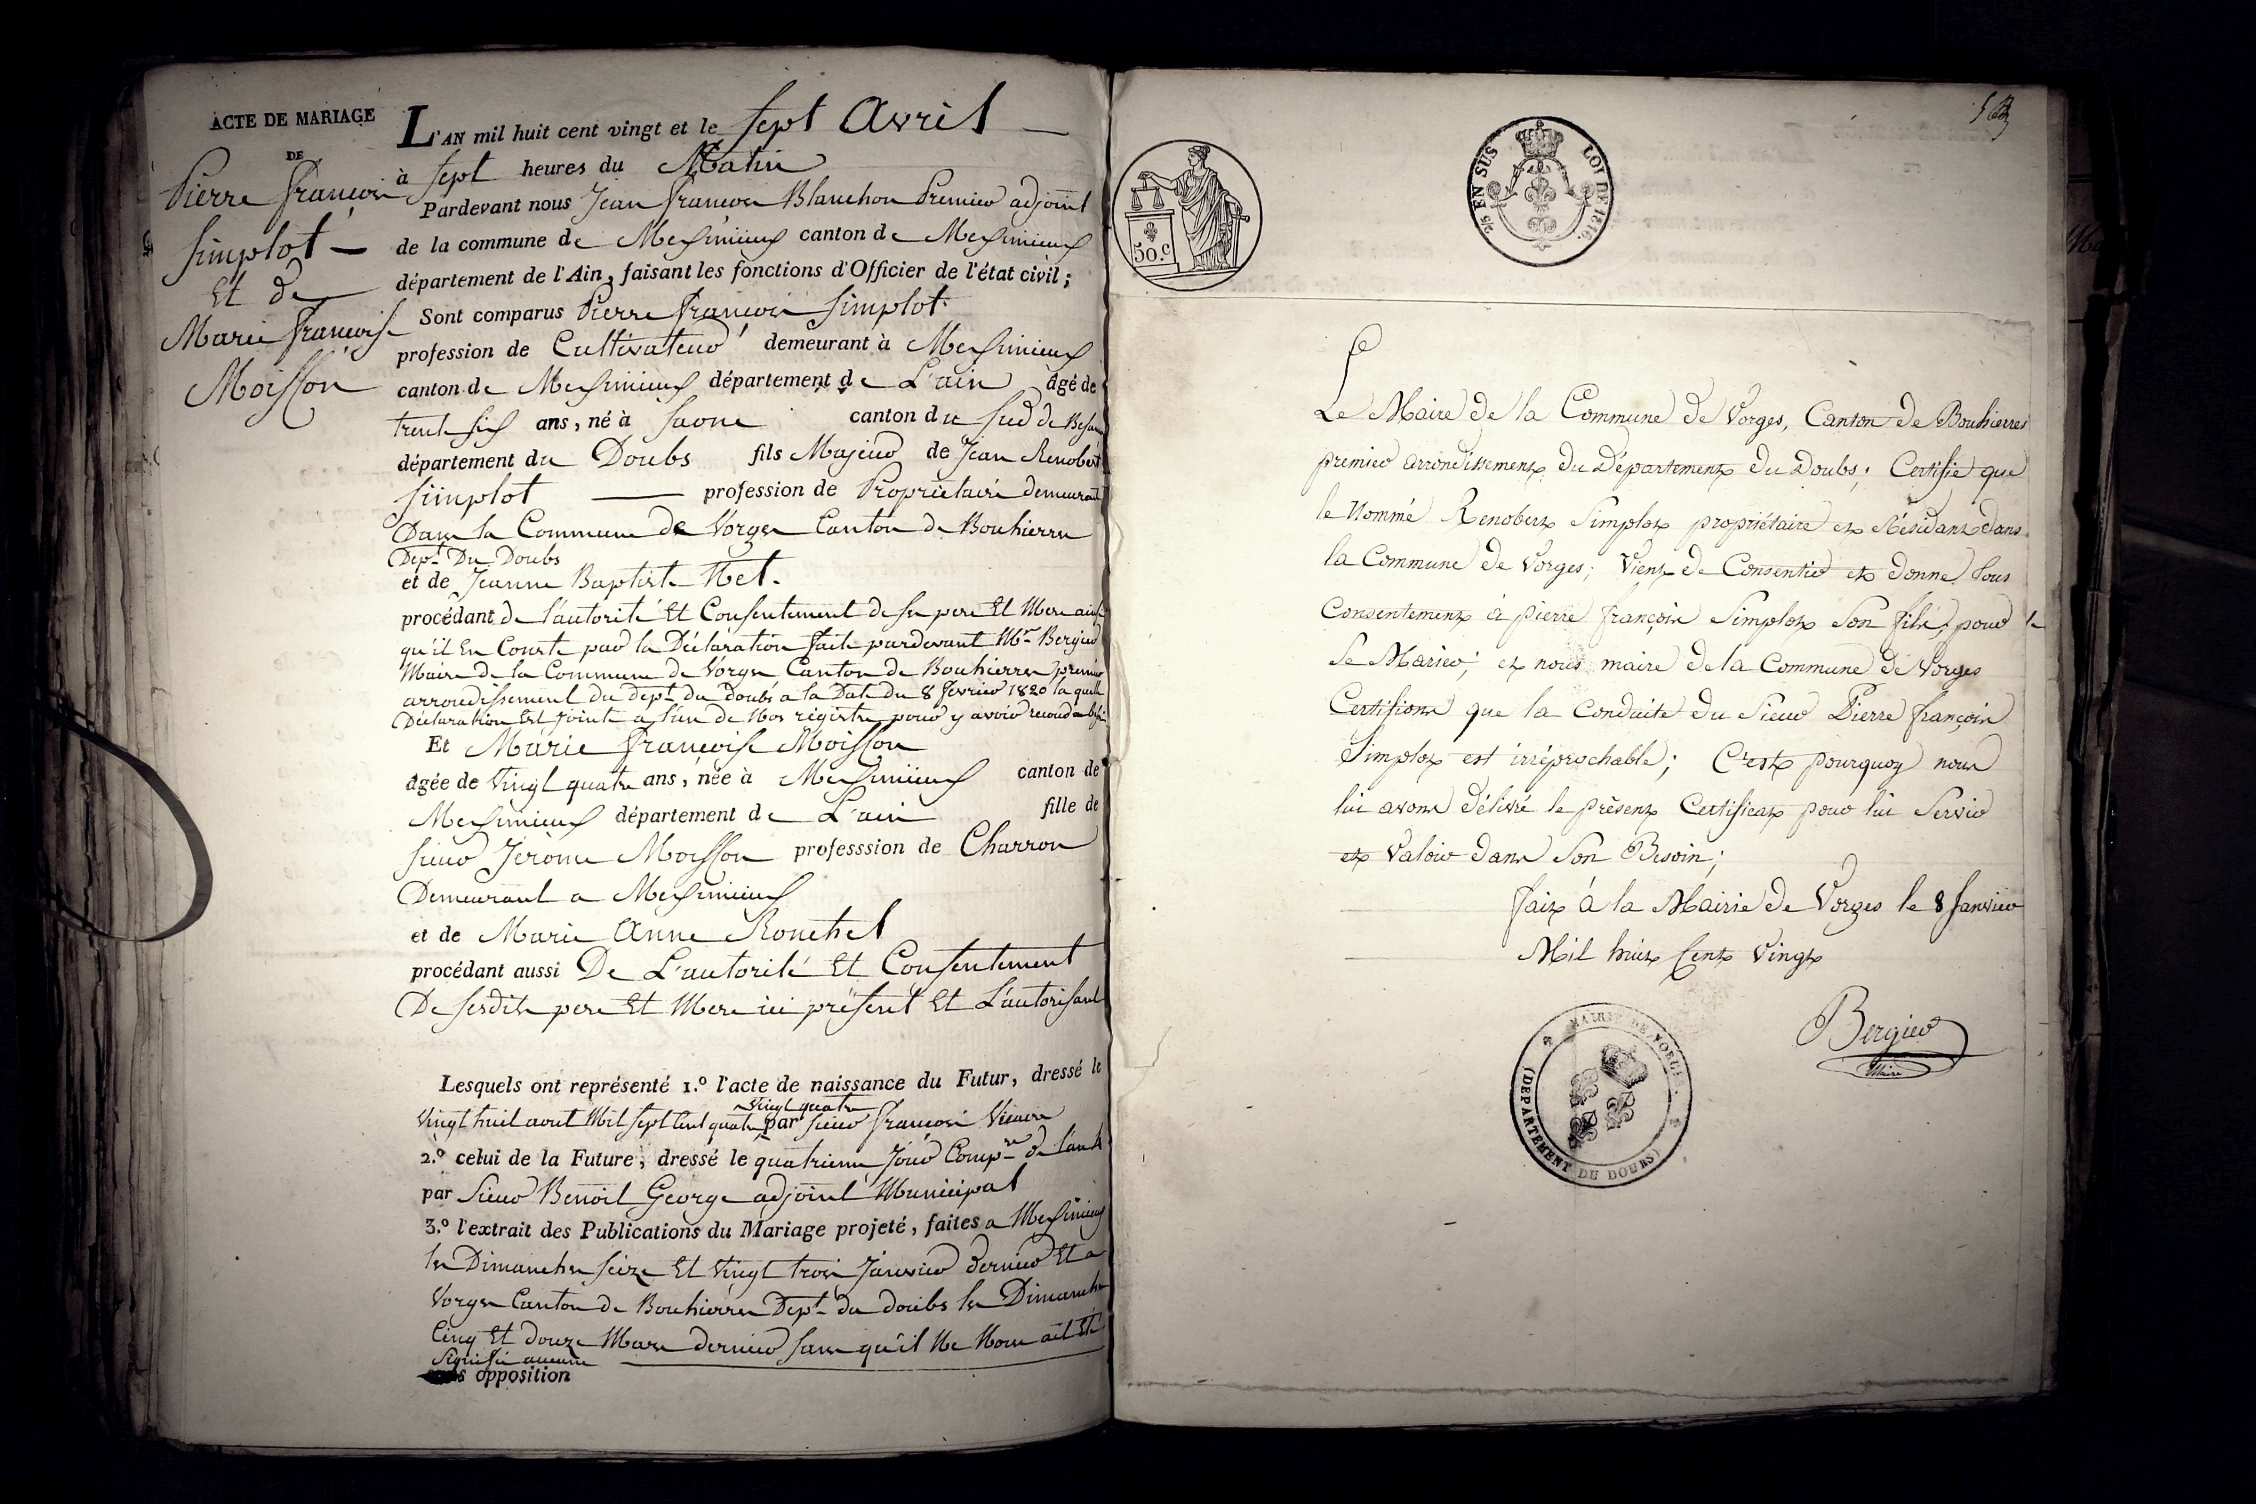 ACTE DE MARIAGE
DE
Pierre françois
Simplot —
Et de
Marie françoise
Moisson
L'AN mil huit cent vingt et le sept Avril —
à sept heures du Matin
Pardevant nous Jean françois Blanchon Premier adjoint
de la commune de Meximieux canton de Meximieux
département de l'Ain, faisant les fonctions d'Officier de l'état civil;
Sont comparus Pierre françois Simplot
profession de Cultivateur demeurant à Meximieux
canton de Meximieux département de L'ain âgé de
trente six ans, né à Saone canton du Sud de Besan
département du Doubs fils Majeur de Jean Renobert
Simplot — profession de Propriétaire demeurant
Dans la Commune de Vorges Canton de Bouhierres
Dept. Du Doubs
et de Jeanne Baptiste
procédant de l'autorité Et Consentement de ses pere Et Mere ainsi
qu'il En Conste par la Déclaration faite pardevant Mr. Bergier
Maire de la Commune de Vorges Canton de Bouhierres premier
arrondissement du dept. du doubs a la Date du 8 Janvier 1820 la quelle
Déclaration Est jointe a l'un de Nos registres pour y avoir recours au besoin
Et Marie françoise Moisson
âgée de vingt quatre ans, née à Meximieux canton de
Meximieux département de L'ain fille de
sieur Jérôme Moisson professsion de Charron
Demeurant a Meximieux
et de Marie Anne
procédant aussi De L'autorité Et Consentement
De sesdits pere Et Mere ici présent Et L'autorisant
Lesquels ont représenté 1.º l'acte de naissance du Futur, dressé le
vingt quatre
vingt huit aout Mil sept Cent quatre par sieur françois Vicaire
2.º celui de la Future, dressé le quatrieme Jour Comp.re de l'an 4
par Sieur Benoit George adjoint Municipal
3.º l'extrait des Publications du Mariage projeté, faites a Meximieux
les Dimanches seize Et vingt trois Janvier dernier Et a
Vorges Canton de Bouhierres Dept. du doubs les Dimanches
Cinq Et douze Mars dernier sans qu'il Ne Nous ait Eté
Signifié aucune
opposition
50.C
2/5 EN SUS LOI DE 1816.
Le Maire de la Commune de Vorges, Canton de Bouhierres
premier arrondissement du Département du Doubs; Certifie que
le Nommé Renobert Simplot propriétaire et Résidant dans
la Commune de Vorges; Vient de Consentir et donne Sous
Consentement à pierre françois Simplot Son fils, pour
Se Marier; et nous maire de la Commune de Vorges
Certifions que la Conduite du Sieur Pierre françois
Simplot est irréprochable; C'est pourquoy nous
lui avons délivré le présent Certificat pour lui Servir
et Valoir dans Son Besoin;
fait à la Mairie de Vorges le 8 Janvier
Mil huit Cent Vingt
Bergier
Maire
MAIRIE DE VORGES
(DEPPARTEMENT DU DOUBS)